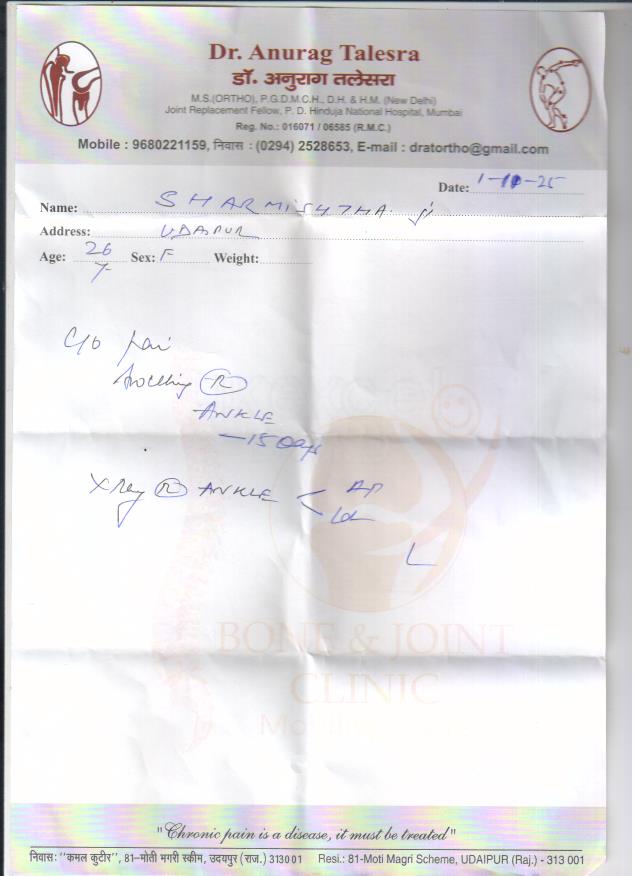 Dr. Anurag Talesra
डॉ. अनुराग तलेसरा
M.S.(ORTHO), P.G.D.M.C.H., D.H. & H.M. (New Delhi)
Joint Replacement Fellow, P. D. Hinduja National Hospital, Mumbai
Reg. No.: 016071 / 06585 (R.M.C.)
Mobile : 9680221159, निवास : (0294) 2528653, E-mail : dratortho@gmail.com
Date: 1-10-25
Name: SHARMISHTHA ji
Address: UDAIPUR
Age: 26 Y Sex: F Weight:
C/o Pain
Swelling (R)
ANKLE
- 15 days
X Ray (R) ANKLE < AP
Lat
BONE & JOINT
CLINIC
"Chronic pain is a disease, it must be treated"
निवास: "कमल कुटीर", 81-मोती मगरी स्कीम, उदयपुर (राज.) 313001 Resi.: 81-Moti Magri Scheme, UDAIPUR (Raj.) - 313 001